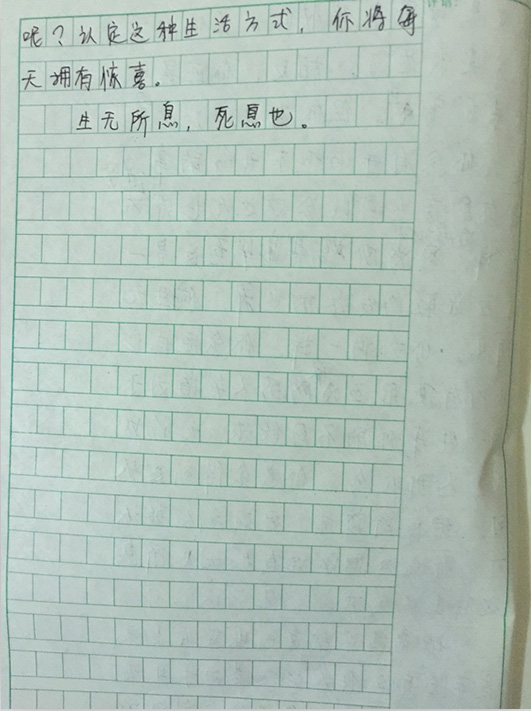 呢？认定这种生活方式，你将每
天拥有惊喜。
生无所息，死愿也。